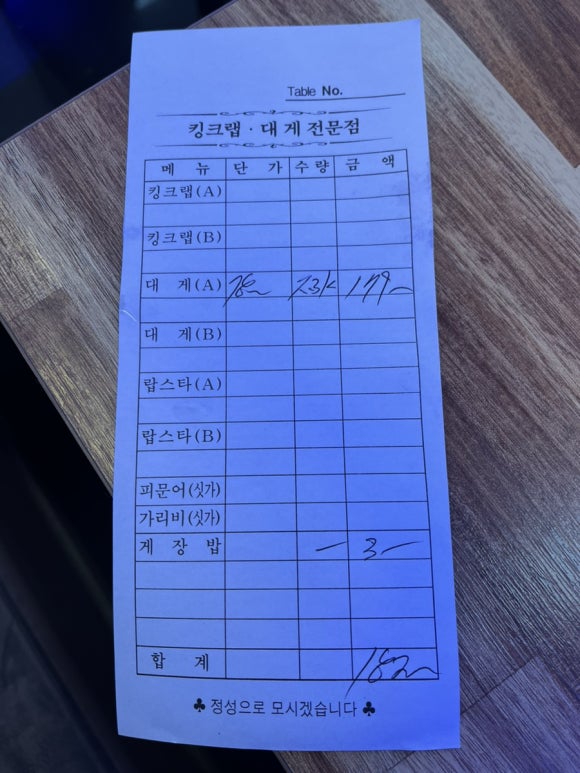 Table No.
킹크랩 · 대게 전문점
메 뉴 단 가 수량 금 액
킹크랩(A)
킹크랩(B)
대 게(A) 78 2.3k 179
대 게(B)
랍스타(A)
랍스타(B)
피문어(싯가)
가리비(싯가)
게 장 밥 - 3 -
합 계 182
♣ 정성으로 모시겠습니다 ♣